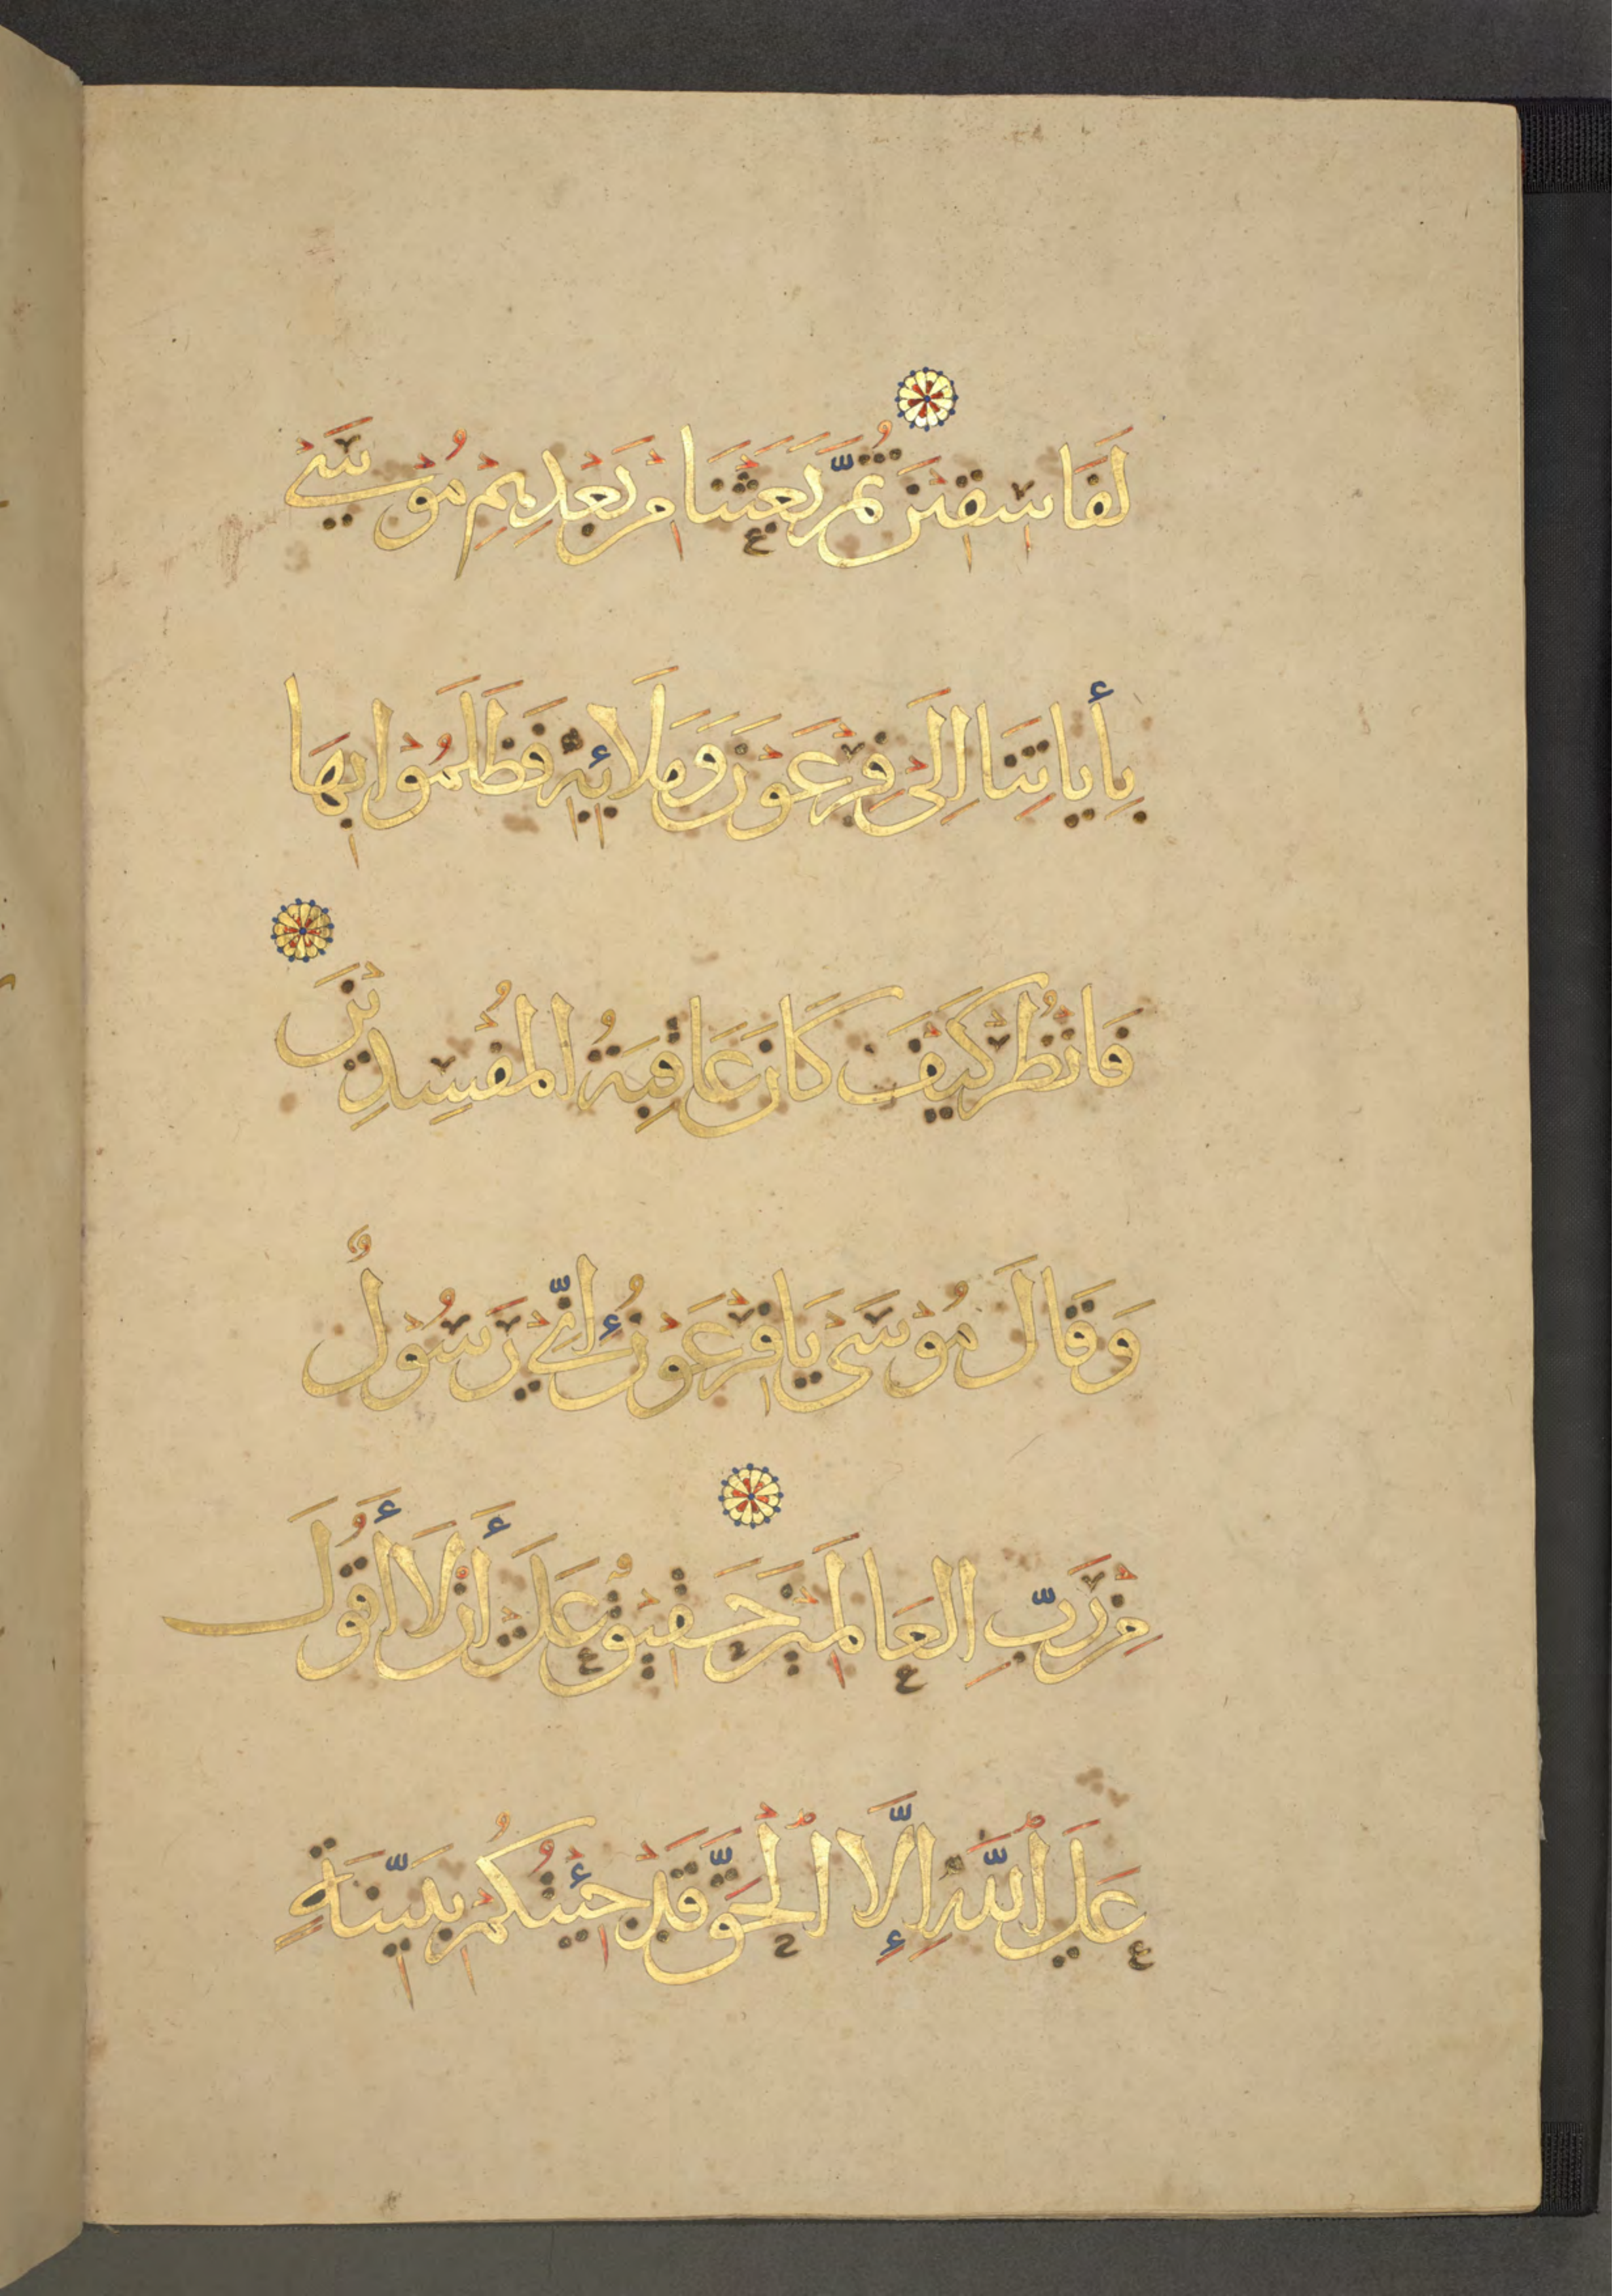 لَفَاسِقِيْنَ ثُمَّ بَعَثْنَا مِنْ بَعْدِهِمْ مُوْسَىٰ
بِأَيَاتِنَا اِلَى فِرْعَوْنَ وَمَلَائِهِ فَظَلَمُوْا بِهَا
فَانْظُرْ كَيْفَ كَانَ عَاقِبَةُ الْمُفْسِدِيْنَ
وَقَالَ مُوْسَى يَا فِرْعَوْنُ اِنِّيْ رَسُوْلٌ
مِنْ رَبِّ الْعَالَمِيْنَ حَقِيْقٌ عَلَيَّ أَنْ لَا أَقُوْلَ
عَلَى اللَّهِ اِلَّا الْحَقَّ قَدْ جِئْتُكُمْ بِبَيِّنَةٍ